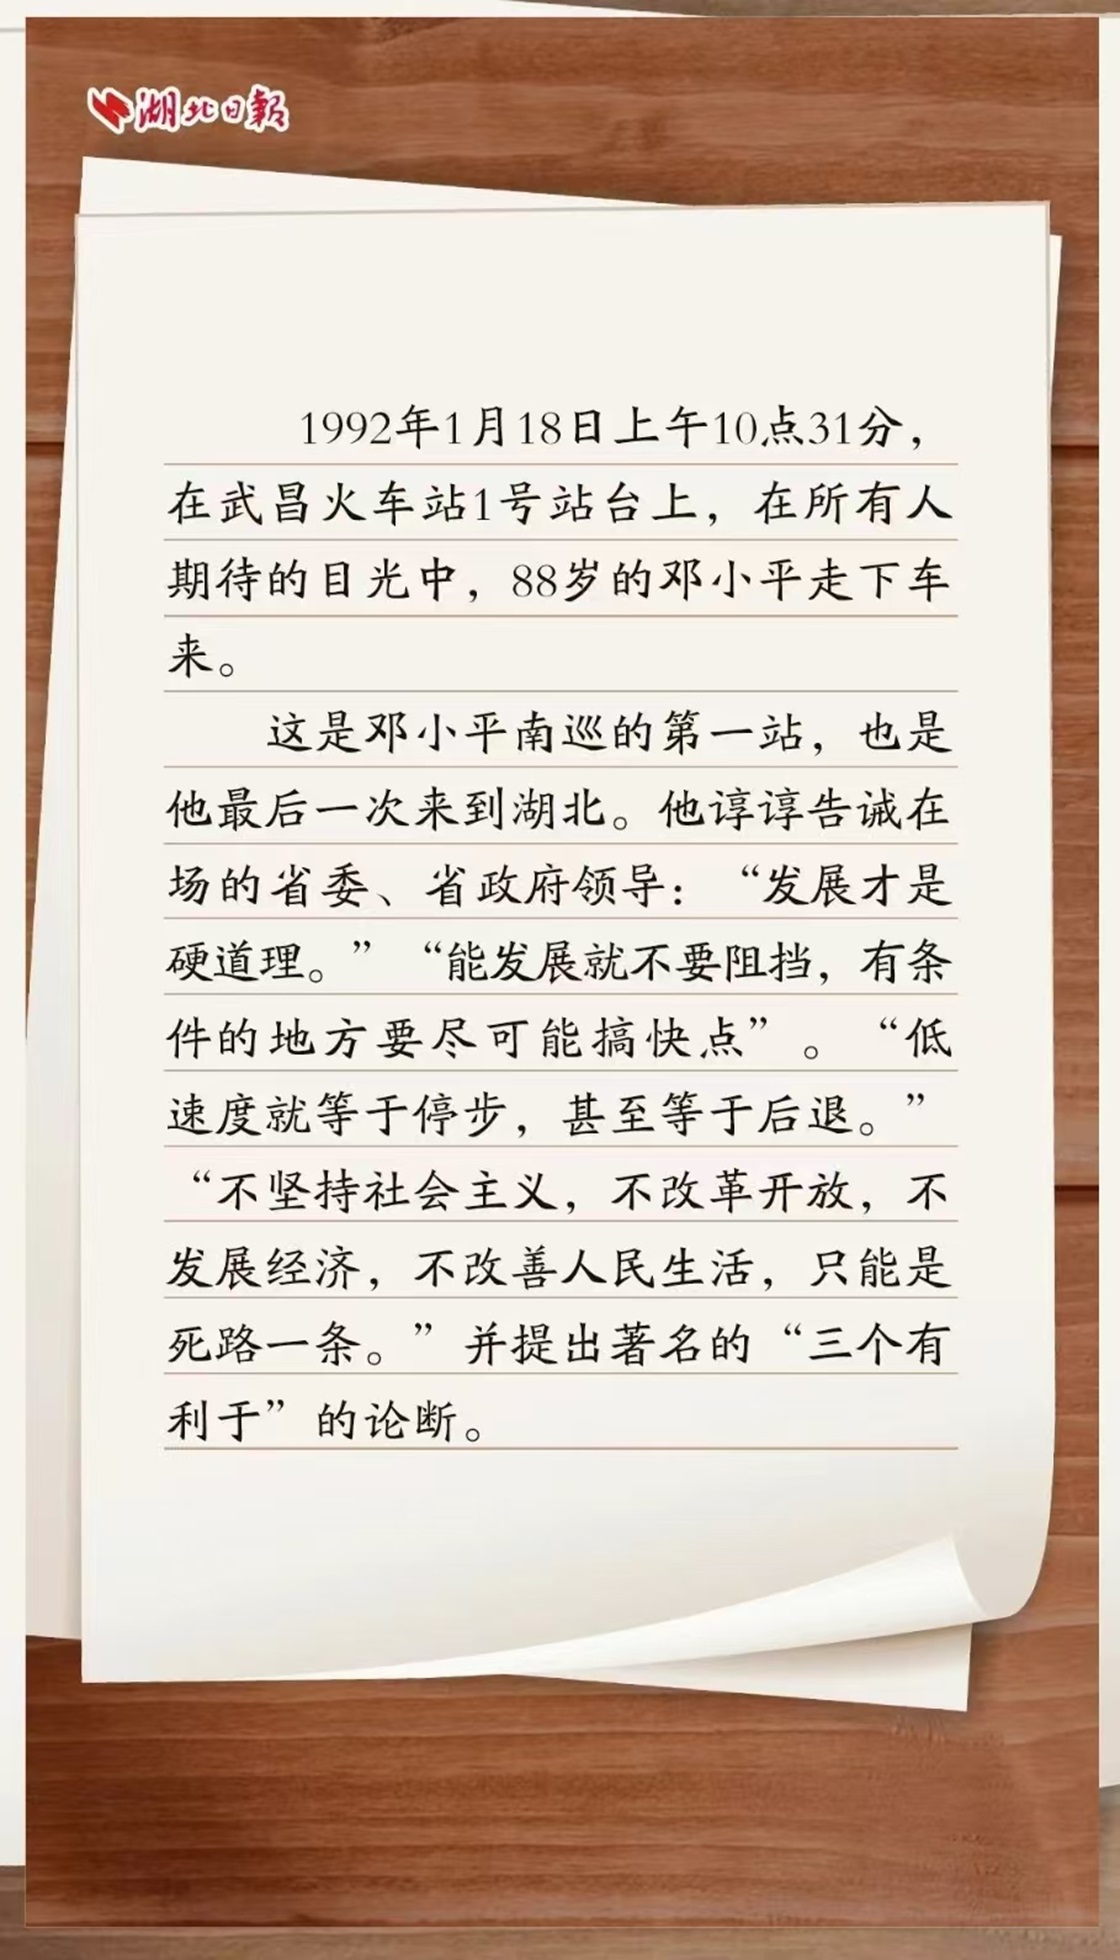 湖北日報
1992年1月18日上午10点31分，
在武昌火车站1号站台上，在所有人
期待的目光中，88岁的邓小平走下车
来。
这是邓小平南巡的第一站，也是
他最后一次来到湖北。他谆谆告诫在
场的省委、省政府领导：“发展才是
硬道理。”“能发展就不要阻挡，有条
件的地方要尽可能搞快点”。“低
速度就等于停步，甚至等于后退。”
“不坚持社会主义，不改革开放，不
发展经济，不改善人民生活，只能是
死路一条。”并提出著名的“三个有
利于”的论断。